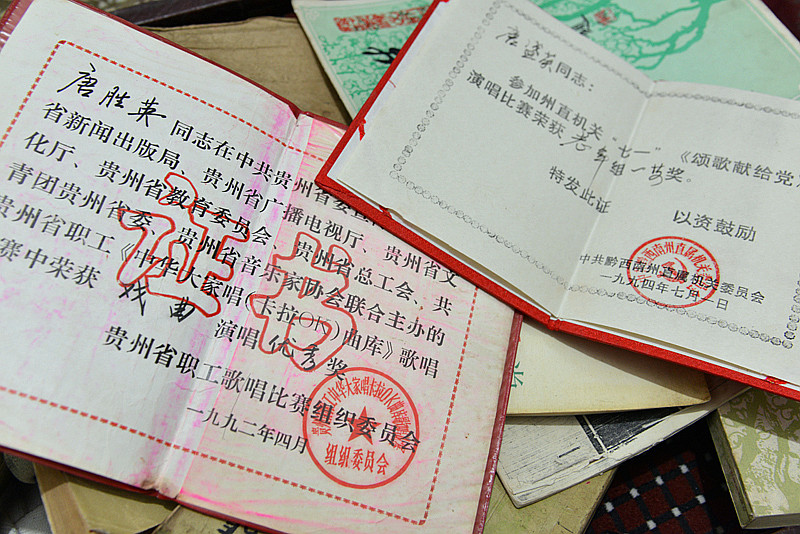 唐胜英同志在中共贵州省委宣
省新闻出版局、贵州省广播电视厅、贵州省文
化厅、贵州省教育委员会、贵州省总工会、共
青团贵州省委、贵州省音乐家协会联合主办的
贵州省职工《中华大家唱(卡拉OK)曲库》歌唱
赛中荣获 戏曲 演唱优秀奖
贵州省职工歌唱比赛组织委员会
一九九二年四月
证书
组织委员会
唐盛英同志:
参加州直机关“七一”《颂歌献给党
演唱比赛荣获老年组一等奖。
特发此证
以资鼓励
中共黔西南州直属机关委员会
一九九四年七月一日